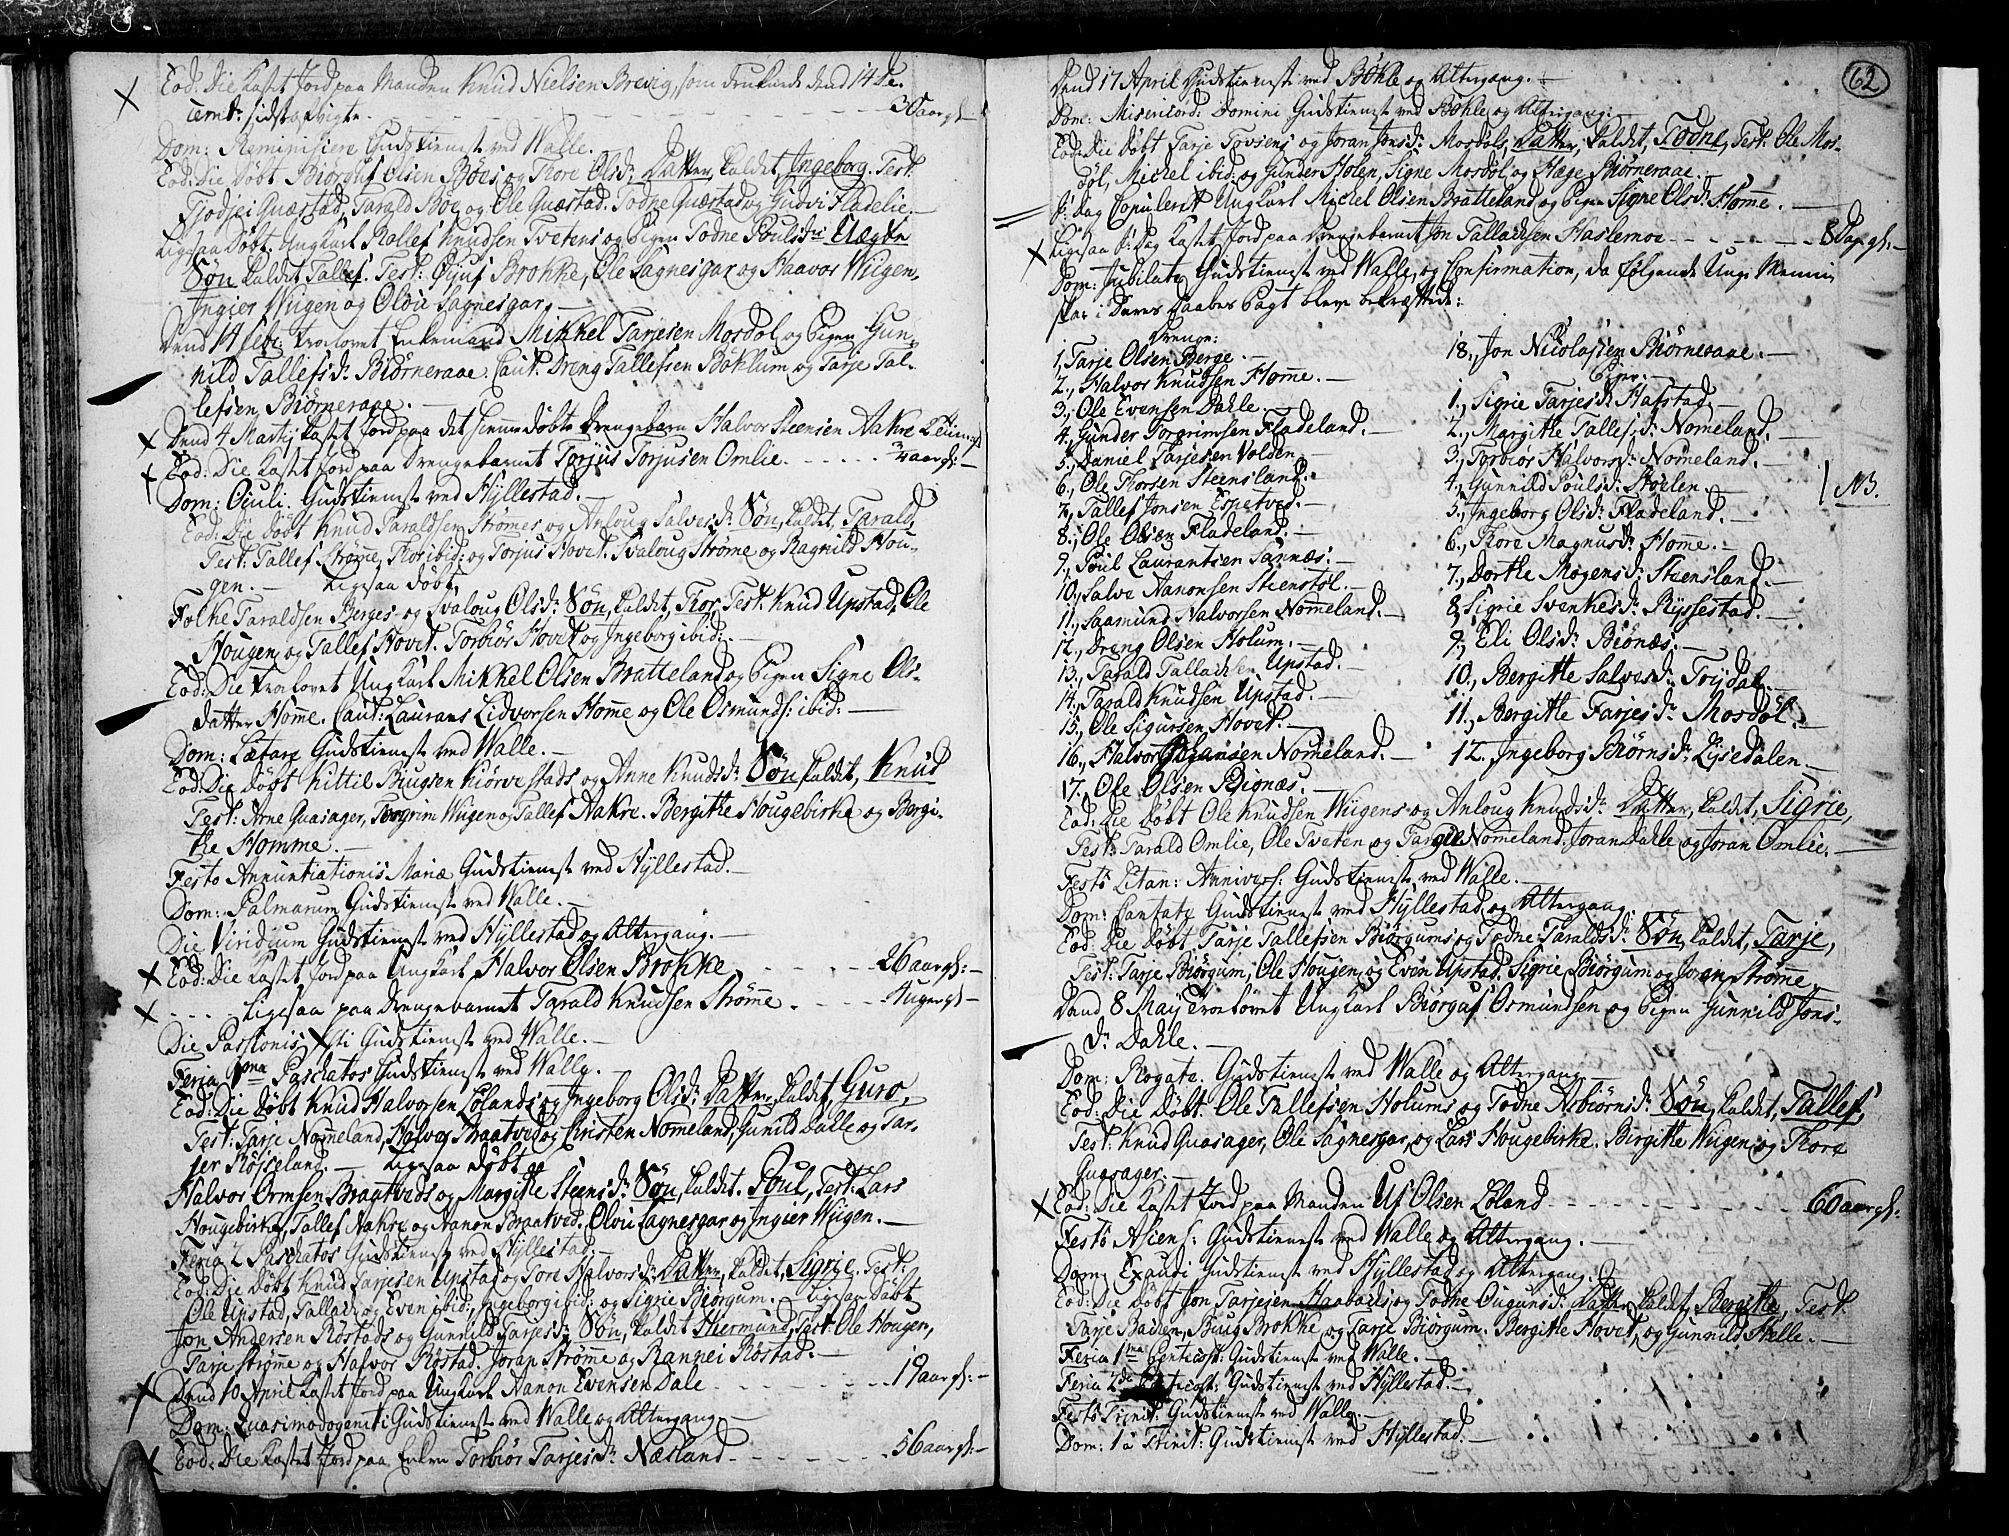 Eod: Die kastet Jord paa Manden Knud Nielsen Brevig, som druknede dend 14 De-
cemb: sidst afvigte. 30 aar gl:
Dom: Reminisiere Gudstieneste ved Walle.
Eod: Die døbt Biørgus Olsen Bøes og Thore Olsd: Datter, kaldet, Ingeborg. Test.
Tjodgei Quæstad, Tarald Boe og Ole Quæstad. Todne Quæstad og Gudvi Fladelie.
Ligesaa døbt. Ungkarl Rollef Knudsen Tvetens og Pigen Todne Poulsd: Uægte
Søn kaldet Tallef. Test: Gjus Brokke, Ole Sagnesgar og Haavor Wiigen.
Ingier Wiigen og Olou Sagnesgar.
Dend 14 Febr: trolovet Enkemand Mikkel Tarjesen Mosdøl og Pigen Gun-
nild Tallefsd: Biørneraae. Caut. Dreng Tallefsen Bøklum og Tarje Tal-
lefsen Biørneraae.
Dend 4 Martij kastet Jord paa det hiemmedøbte Drengebarn Halvor Steensen Aakre
Eod: Die kastet Jord paa Drengebarnet Torjus Torjusen Omlie. aar gl:
Dom: Oculi. Gudstieneste ved Hyllestad.
Eod: Die døbt Knud Taraldsen Strømes og Anloug Salvesd: Søn, kaldet, Tarald,
Test: Tallef Strøme, Thor ibid: og Torjus Hovet. Svaloug Strøme og Ragnild Hou-
gen. Ligesaa døbt,
Folke Taraldsen Berges og Svaloug Olsd: Søn, kaldet, Thor. Test: Knud Upstad, Ole
Hougen og Tallef Hovet. Torbiør Hovet og Ingeborg ibid:
Eod: Die trolovet Ungkarl Mikkel Olsen Bratteland og Pigen Signe Ols-
datter Homme. Caut: Laurans Lidvorsen Home og Ole Osmunds: ibid:
Dom: Lætare Gudstieneste ved Walle.
Eod: Die døbt Kittil Bougsen Kiørvestads og Anne Knudsd: Søn kaldet, Knud
Test: Arne Quasager, Torgrim Wiigen og Tallef Aakre. Bergitte Hougebirke og Bergi-
the Homme.
Festo Annuntiationis Mariæ Gudstieneste ved Hyllestad.
Dom: Palmarum Gudstieneste ved Walle.
Die Viridium Gudstieneste ved Hyllestad og Altergang.
Eod: Die kastet Jord paa Ungkarl Halvor Olsen Brokke 26 aar gl:
Ligesaa paa Drengebarnet Tarald Knudsen Strømme. uger gl:
Die Passionis Xsti Gudstieneste ved Walle.
Feria 1ma Paschatos Gudstieneste ved Walle.
Eod: Die døbt Knud Halvorsen Lølands og Ingeborg Olsd: Datter, kaldet, Guro,
Test: Tarje Nomeland, Halvor Braatved og Christen Nomeland, Gunild Dalle og Tar-
jer Røjseland. Ligesaa døbt
Halvor Ormsen Braatveds og Margitte Steensd: Søn, kaldet. Poul, Test: Lars
Hougebirke, Tallef Aakre og Aanon Braatved. Olou Sagnesgar og Ingier Wiigen.
Feria 2 Paschatos Gudstieneste ved Hyllestad.
Eod: Die døbt Knud Tarjesen Upstad og Tore Halvorsd: Datter, kaldet, Sigrie. Test.
Ole Upstad, Tallach og Even ibid:, Ingeborg ibid: og Sigrie Biørgum. Ligesaa døbt
Jon Andersen Røstads og Gunnild Tarjesd: Søn, kaldet Thermund, Test: Ole Hougen,
Tarje Strømme og Halvor Røstad. Joran Strømme og Rannei Røstad.
Dend 10 April kastet Jord paa Ungkarl Aanon Evensen Dale 19 aar gl:
Dom: Quasimodogeniti Gudstieneste ved Walle og Altergang.
Eod: Die kastet Jord paa Enken Torbiør Tarjesd: Næsland 56 aar gl:
62
Dend 17 April Gudstieneste ved Bøkle og Altergang.
Dom: Misericord: Domini Gudstieneste ved Bøkle og Altergang.
Eod: Die døbt Tarje Tovsens og Joran Jonsd: Mosdøls Datter, kaldet, Todne, Test. Ole Mos-
døl, Mickel ibid: og Gunder Holen, Signe Mosdøl og Hæge Biørneraae.
J: Dag Copuleret Ungkarl Mickel Olsen Bratteland og Pigen Signe Olsd: Homme.
Ligesaa J: Dag kastet Jord paa Drengebarnet Jon Tallachsen Haslemoe 8 Dage gl:
Dom: Jubilate Gudstieneste ved Walle, og Confirmation, da følgende Unge Menni-
sker i Deres Daabes Pagt bleve bekræftede:
Drenge:
1, Tarje Olsen Berge.
2., Halvor Knudsen Homme.
3., Ole Evensen Dahle.
4., Gunder Torgrimsen Fladeland.
5., Daniel Tarjesen Volden.
6., Ole Thorsen Steensland.
7, Tallef Jonsen Espetved.
8., Ole Olsen Fladeland.
9., Poul Laurantsen Sannæs.
10., Salve Aanonsen Steenstøl.
11., Saamund Halvorsen Nomeland.
12., Dreng Olsen Holum.
13., Tarald Tallachsen Upstad.
14., Tarald Knudsen Upstad.
15., Ole Sigursen Hovet.
16., Halvor Johansen Nomeland.
17., Ole Olsen Rignæs.
18., Jon Nicolajsen Biørneraae.
Piger.
1., Sigrie Tarjesd: Hafstad.
2., Margitte Tallefsd: Nomeland.
3., Torbiør Halvorsd: Nomeland.
4., Gunnild Poulsd: Stoelen.
5., Ingeborg Olsd: Fladeland.
6., Thore Magnusd: Homme.
7., Dorthe Mogensd: Steensland.
8., Sigrie Svenkesd: Ryssestad.
9., Eli Olsd: Biønæs.
10., Bergitte Salvesd: Trydal.
11., Bergitte Tarjesd: Mosdøl.
12., Ingeborg Biørnsd: Lysedalen.
NB.
Eod: Die døbt Ole Knudsen Wiigens og Anloug Knudsd: Datter, kaldet, Sigrie,
Test: Tarald Omlie, Ole Tvaten og Tarje Nomeland. Joran Dalle og Joran Omlie.
Festo Litan: Annivers: Gudstieneste ved Walle.
Dom: Cantate Gudstieneste ved Hyllestad og Altergang.
Eod: Die døbt Tarje Tallefsen Biørgums og Todne Taraldsd: Søn, kaldet, Tarje,
Test: Tarje Biørgum, Ole Hougen og Even Upstad. Sigrie Biørgum og Joran Strømme.
Dend 8 Maij trolovet Ungkarl Biørguf Osmundsen og Pigen Gunnild Jons-
d: Dahle.
Dom: Rogate. Gudstieneste ved Walle og Altergang
Eod: Die døbt. Ole Tallefsen Holums og Todne Asbiørnsd: Søn, kaldet, Tallef,
Test: Knud Quasager, Ole Sagnesgar, og Lars Hougebirke. Birgitte Wiigen og Thore
Quasager.
Eod: Die kastet Jord paa Manden Uf Olsen Løland 66 aar gl:
Festo Asiens: Gudstieneste ved Walle og Altergang.
Dom: Exaudi Gudstieneste ved Hyllestad og Altergang.
Eod: Die døbt Jon Tarjesen Haabachs og Todne Ougunsd: Datter kaldet, Bergitte, Test.
Tarje Backen, Boug Brokke og Tarje Biørgum. Bergitte Hovet, og Gunnild Helle.
Feria 1ma Penticost: Gudstieneste ved Walle.
Feria 2da Gudstieneste ved Hyllestad.
Festo Trinit: Gudstieneste ved Walle.
Dom: 1 a Trinit: Gudstieneste ved Hyllestad.